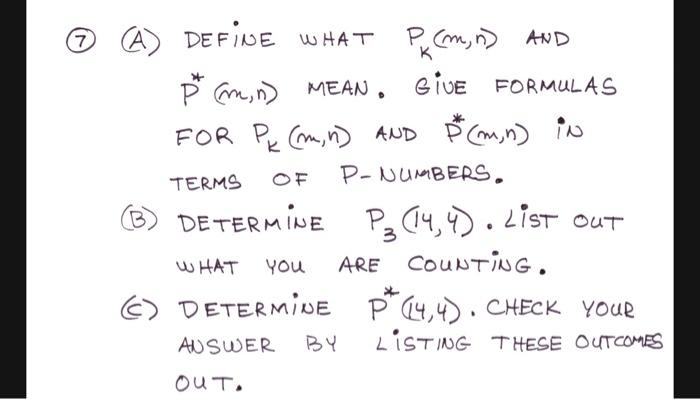 ⑦ (A) DEFINE WHAT P_k(m,n) AND
P*(m,n) MEAN. GIVE FORMULAS
FOR P_k(m,n) AND P*(m,n) IN
TERMS OF P-NUMBERS.
(B) DETERMINE P_3(14,4). LIST OUT
WHAT YOU ARE COUNTING.
(C) DETERMINE P*(14,4). CHECK YOUR
ANSWER BY LISTING THESE OUTCOMES
OUT.